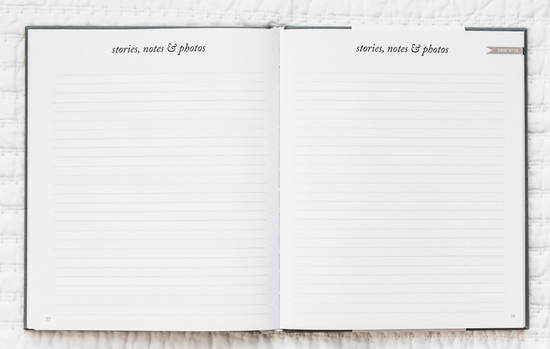 stories, notes & photos
stories, notes & photos